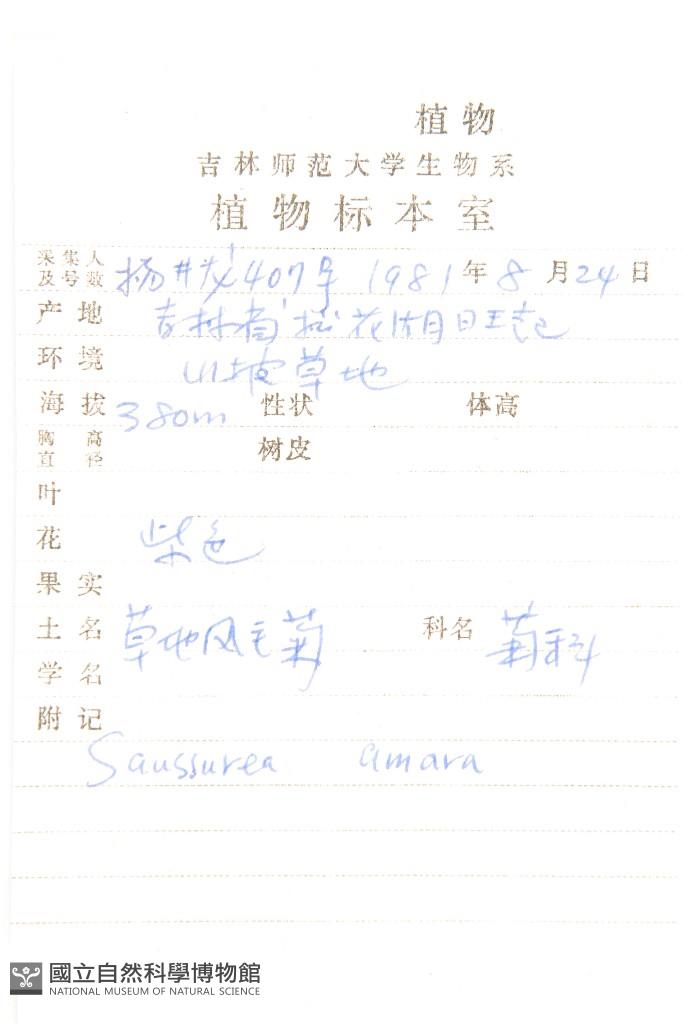 植物
吉林师范大学生物系
植物标本室
采集人及号数 杨 407号 1981年8月24日
产地 吉林省 松花湖
环境 山坡草地
海拔 380m 性状 体高
胸高直径 树皮
叶
花 紫色
果实
土名 草地风毛菊 科名 菊科
学名
附记
Saussurea amara
國立自然科學博物館
NATIONAL MUSEUM OF NATURAL SCIENCE